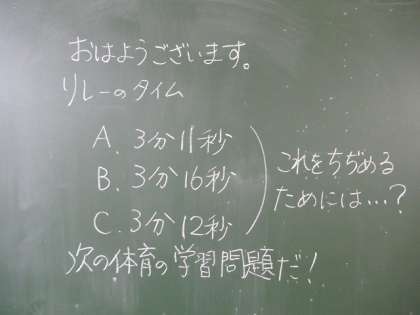 おはようございます。
リレーのタイム
A. 3分11秒
B. 3分16秒
C. 3分12秒
これをちぢめる
ためには…?
次の体育の学習問題だ!